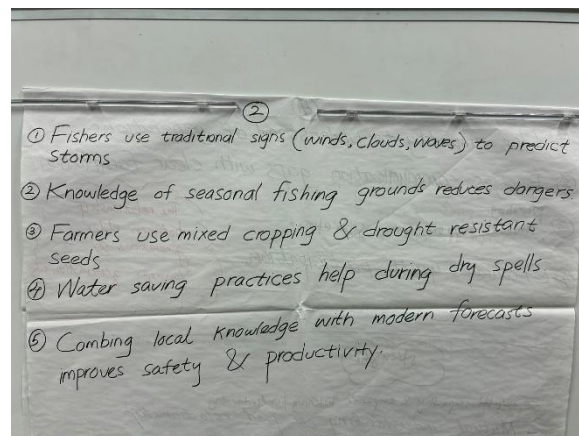 ②
① Fishers use traditional signs (winds, clouds, waves) to predict
storms
② Knowledge of seasonal fishing grounds reduces dangers.
③ Farmers use mixed cropping & drought resistant
seeds
④ Water saving practices help during dry spells
⑤ Combing local knowledge with modern forecasts
improves safety & productivity.